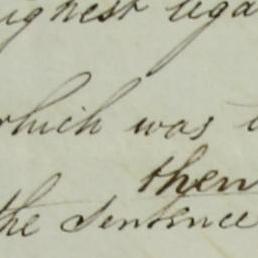 ighest lega
which was i
then
the sentence